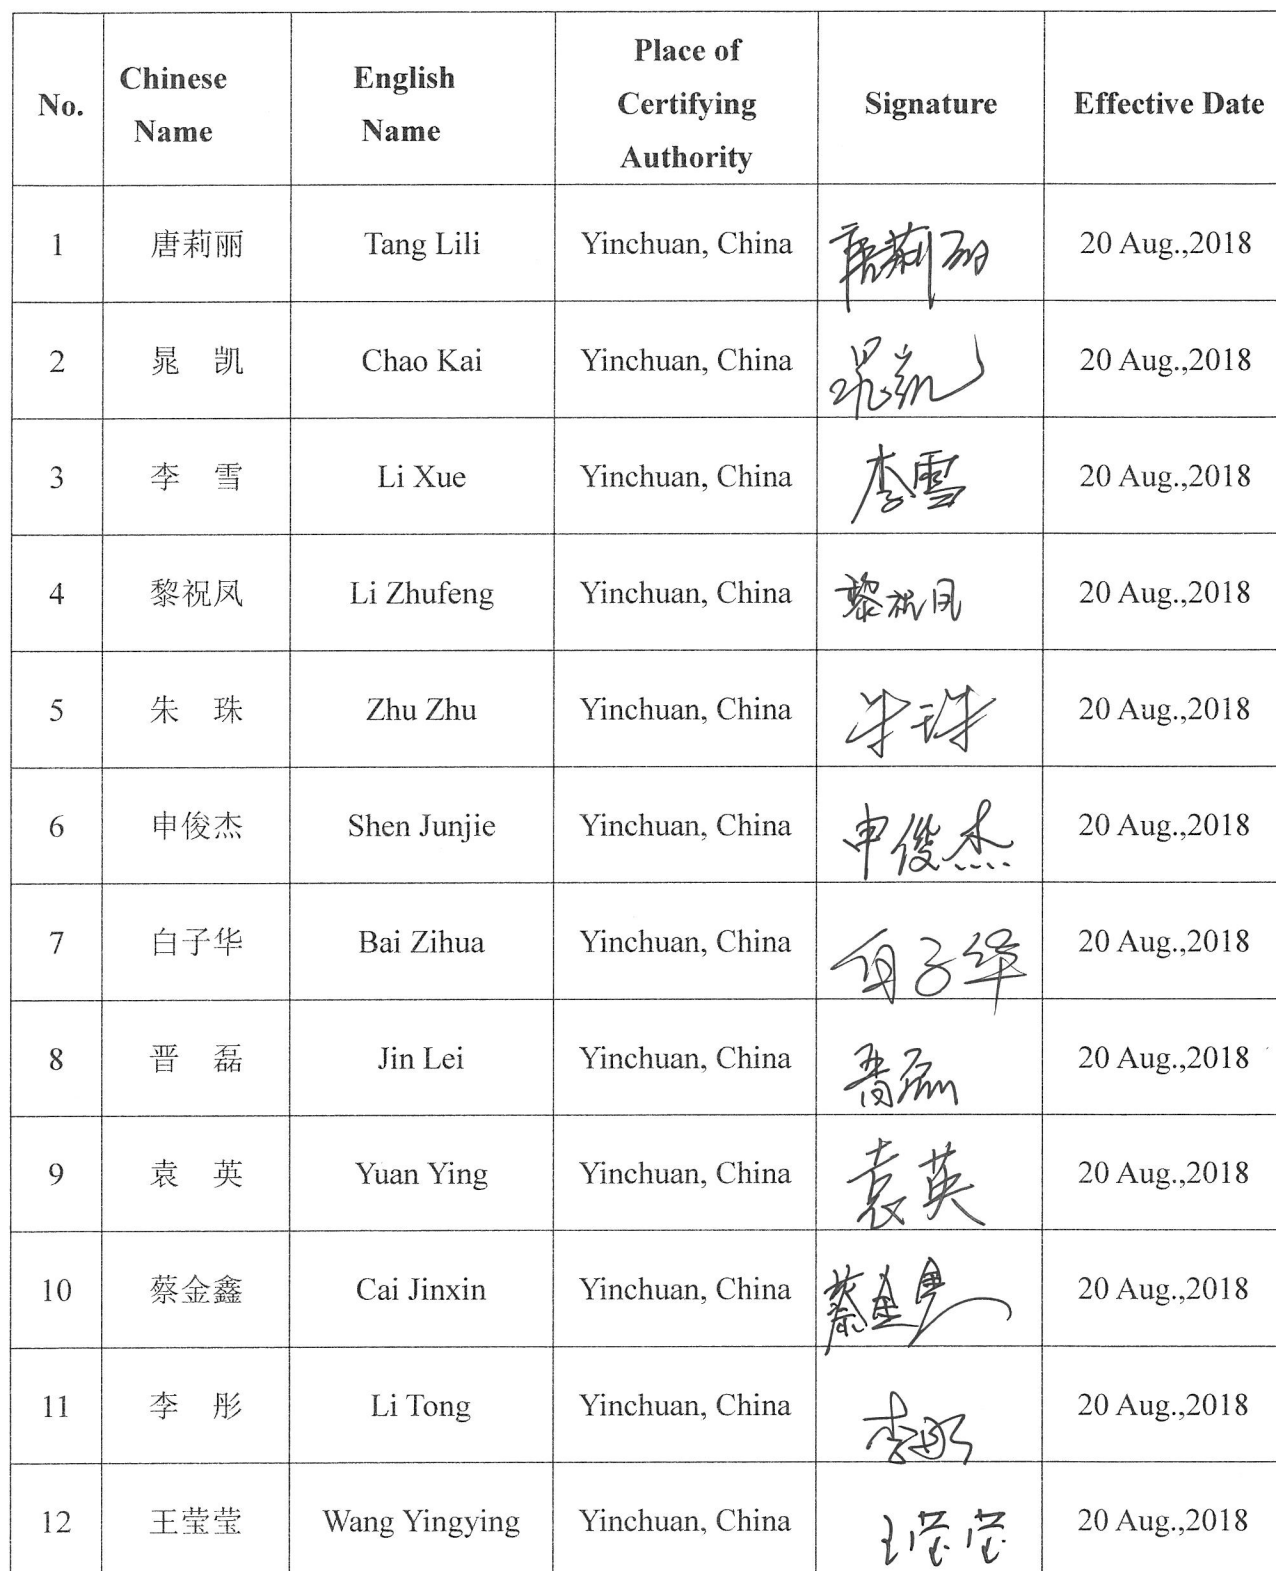 No. Chinese Name English Name Place of Certifying Authority Signature Effective Date
1 唐莉丽 Tang Lili Yinchuan, China 唐莉丽 20 Aug.,2018
2 晁 凯 Chao Kai Yinchuan, China 晁凯 20 Aug.,2018
3 李 雪 Li Xue Yinchuan, China 李雪 20 Aug.,2018
4 黎祝凤 Li Zhufeng Yinchuan, China 黎祝凤 20 Aug.,2018
5 朱 珠 Zhu Zhu Yinchuan, China 朱珠 20 Aug.,2018
6 申俊杰 Shen Junjie Yinchuan, China 申俊杰 20 Aug.,2018
7 白子华 Bai Zihua Yinchuan, China 白子华 20 Aug.,2018
8 晋 磊 Jin Lei Yinchuan, China 晋磊 20 Aug.,2018
9 袁 英 Yuan Ying Yinchuan, China 袁英 20 Aug.,2018
10 蔡金鑫 Cai Jinxin Yinchuan, China 蔡金鑫 20 Aug.,2018
11 李 彤 Li Tong Yinchuan, China 李彤 20 Aug.,2018
12 王莹莹 Wang Yingying Yinchuan, China 王莹莹 20 Aug.,2018